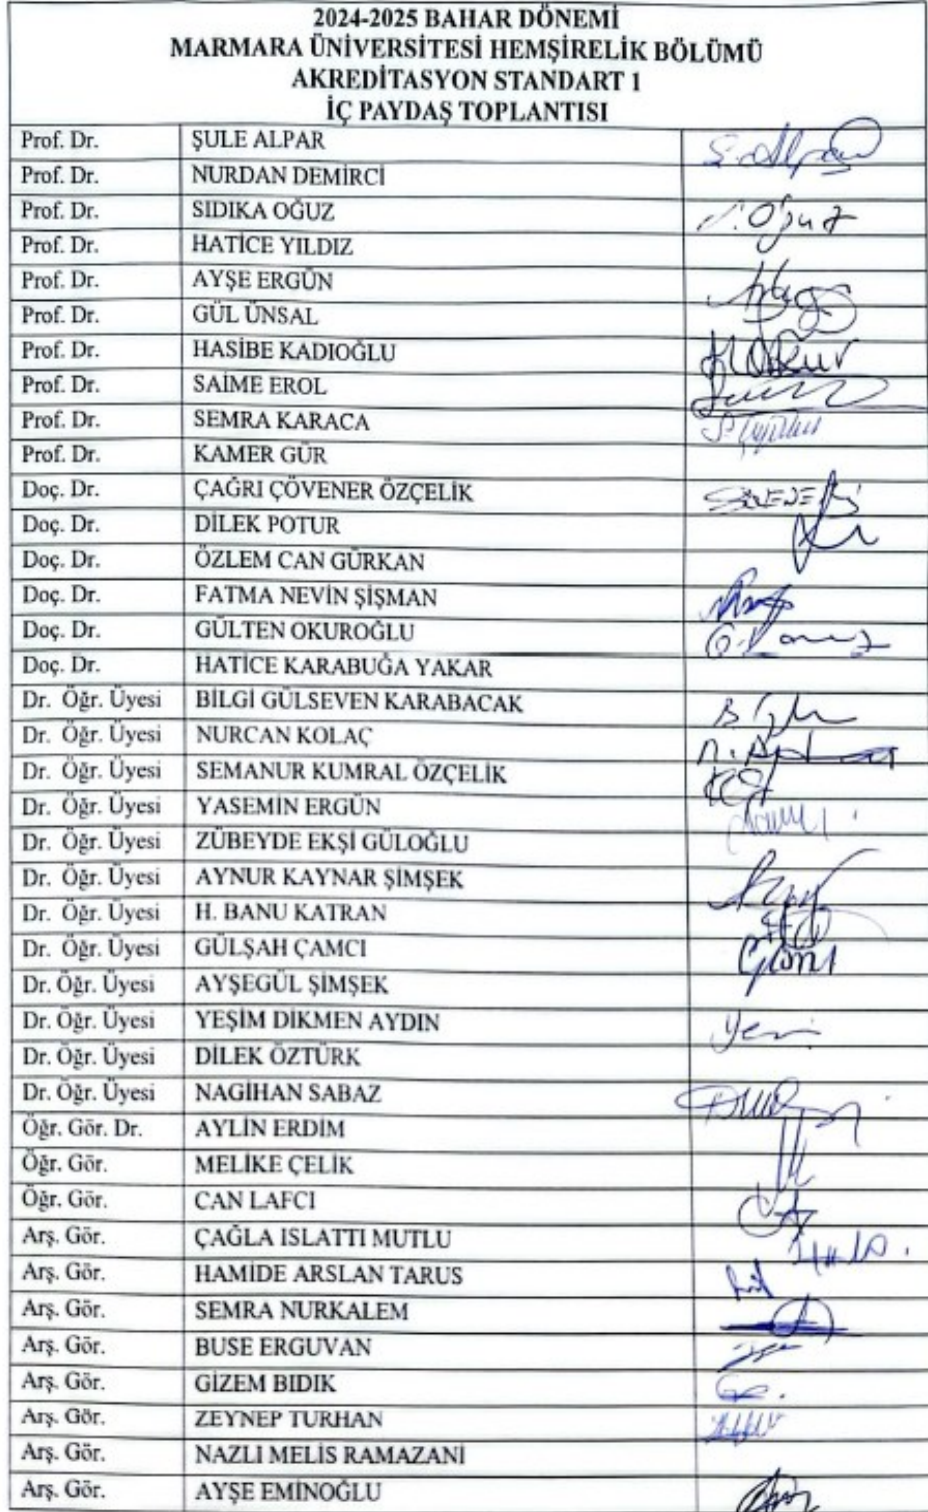 2024-2025 BAHAR DÖNEMİ
MARMARA ÜNİVERSİTESİ HEMŞİRELİK BÖLÜMÜ
AKREDİTASYON STANDART 1
İÇ PAYDAŞ TOPLANTISI
Prof. Dr. ŞULE ALPAR S. Alpar
Prof. Dr. NURDAN DEMİRCİ
Prof. Dr. SIDIKA OĞUZ S. Oğuz
Prof. Dr. HATİCE YILDIZ
Prof. Dr. AYŞE ERGÜN
Prof. Dr. GÜL ÜNSAL
Prof. Dr. HASİBE KADIOĞLU
Prof. Dr. SAİME EROL
Prof. Dr. SEMRA KARACA
Prof. Dr. KAMER GÜR
Doç. Dr. ÇAĞRI ÇÖVENER ÖZÇELİK
Doç. Dr. DİLEK POTUR
Doç. Dr. ÖZLEM CAN GÜRKAN
Doç. Dr. FATMA NEVİN ŞİŞMAN
Doç. Dr. GÜLTEN OKUROĞLU
Doç. Dr. HATİCE KARABUĞA YAKAR
Dr. Öğr. Üyesi BİLGİ GÜLSEVEN KARABACAK
Dr. Öğr. Üyesi NURCAN KOLAÇ
Dr. Öğr. Üyesi SEMANUR KUMRAL ÖZÇELİK
Dr. Öğr. Üyesi YASEMİN ERGÜN
Dr. Öğr. Üyesi ZÜBEYDE EKŞİ GÜLOĞLU
Dr. Öğr. Üyesi AYNUR KAYNAR ŞİMŞEK
Dr. Öğr. Üyesi H. BANU KATRAN
Dr. Öğr. Üyesi GÜLŞAH ÇAMCI
Dr. Öğr. Üyesi AYŞEGÜL ŞİMŞEK
Dr. Öğr. Üyesi YEŞİM DİKMEN AYDIN
Dr. Öğr. Üyesi DİLEK ÖZTÜRK
Dr. Öğr. Üyesi NAGİHAN SABAZ
Öğr. Gör. Dr. AYLİN ERDİM
Öğr. Gör. MELİKE ÇELİK
Öğr. Gör. CAN LAFCI
Arş. Gör. ÇAĞLA ISLATTI MUTLU
Arş. Gör. HAMİDE ARSLAN TARUS
Arş. Gör. SEMRA NURKALEM
Arş. Gör. BUSE ERGUVAN
Arş. Gör. GİZEM BIDIK
Arş. Gör. ZEYNEP TURHAN
Arş. Gör. NAZLI MELİS RAMAZANİ
Arş. Gör. AYŞE EMİNOĞLU